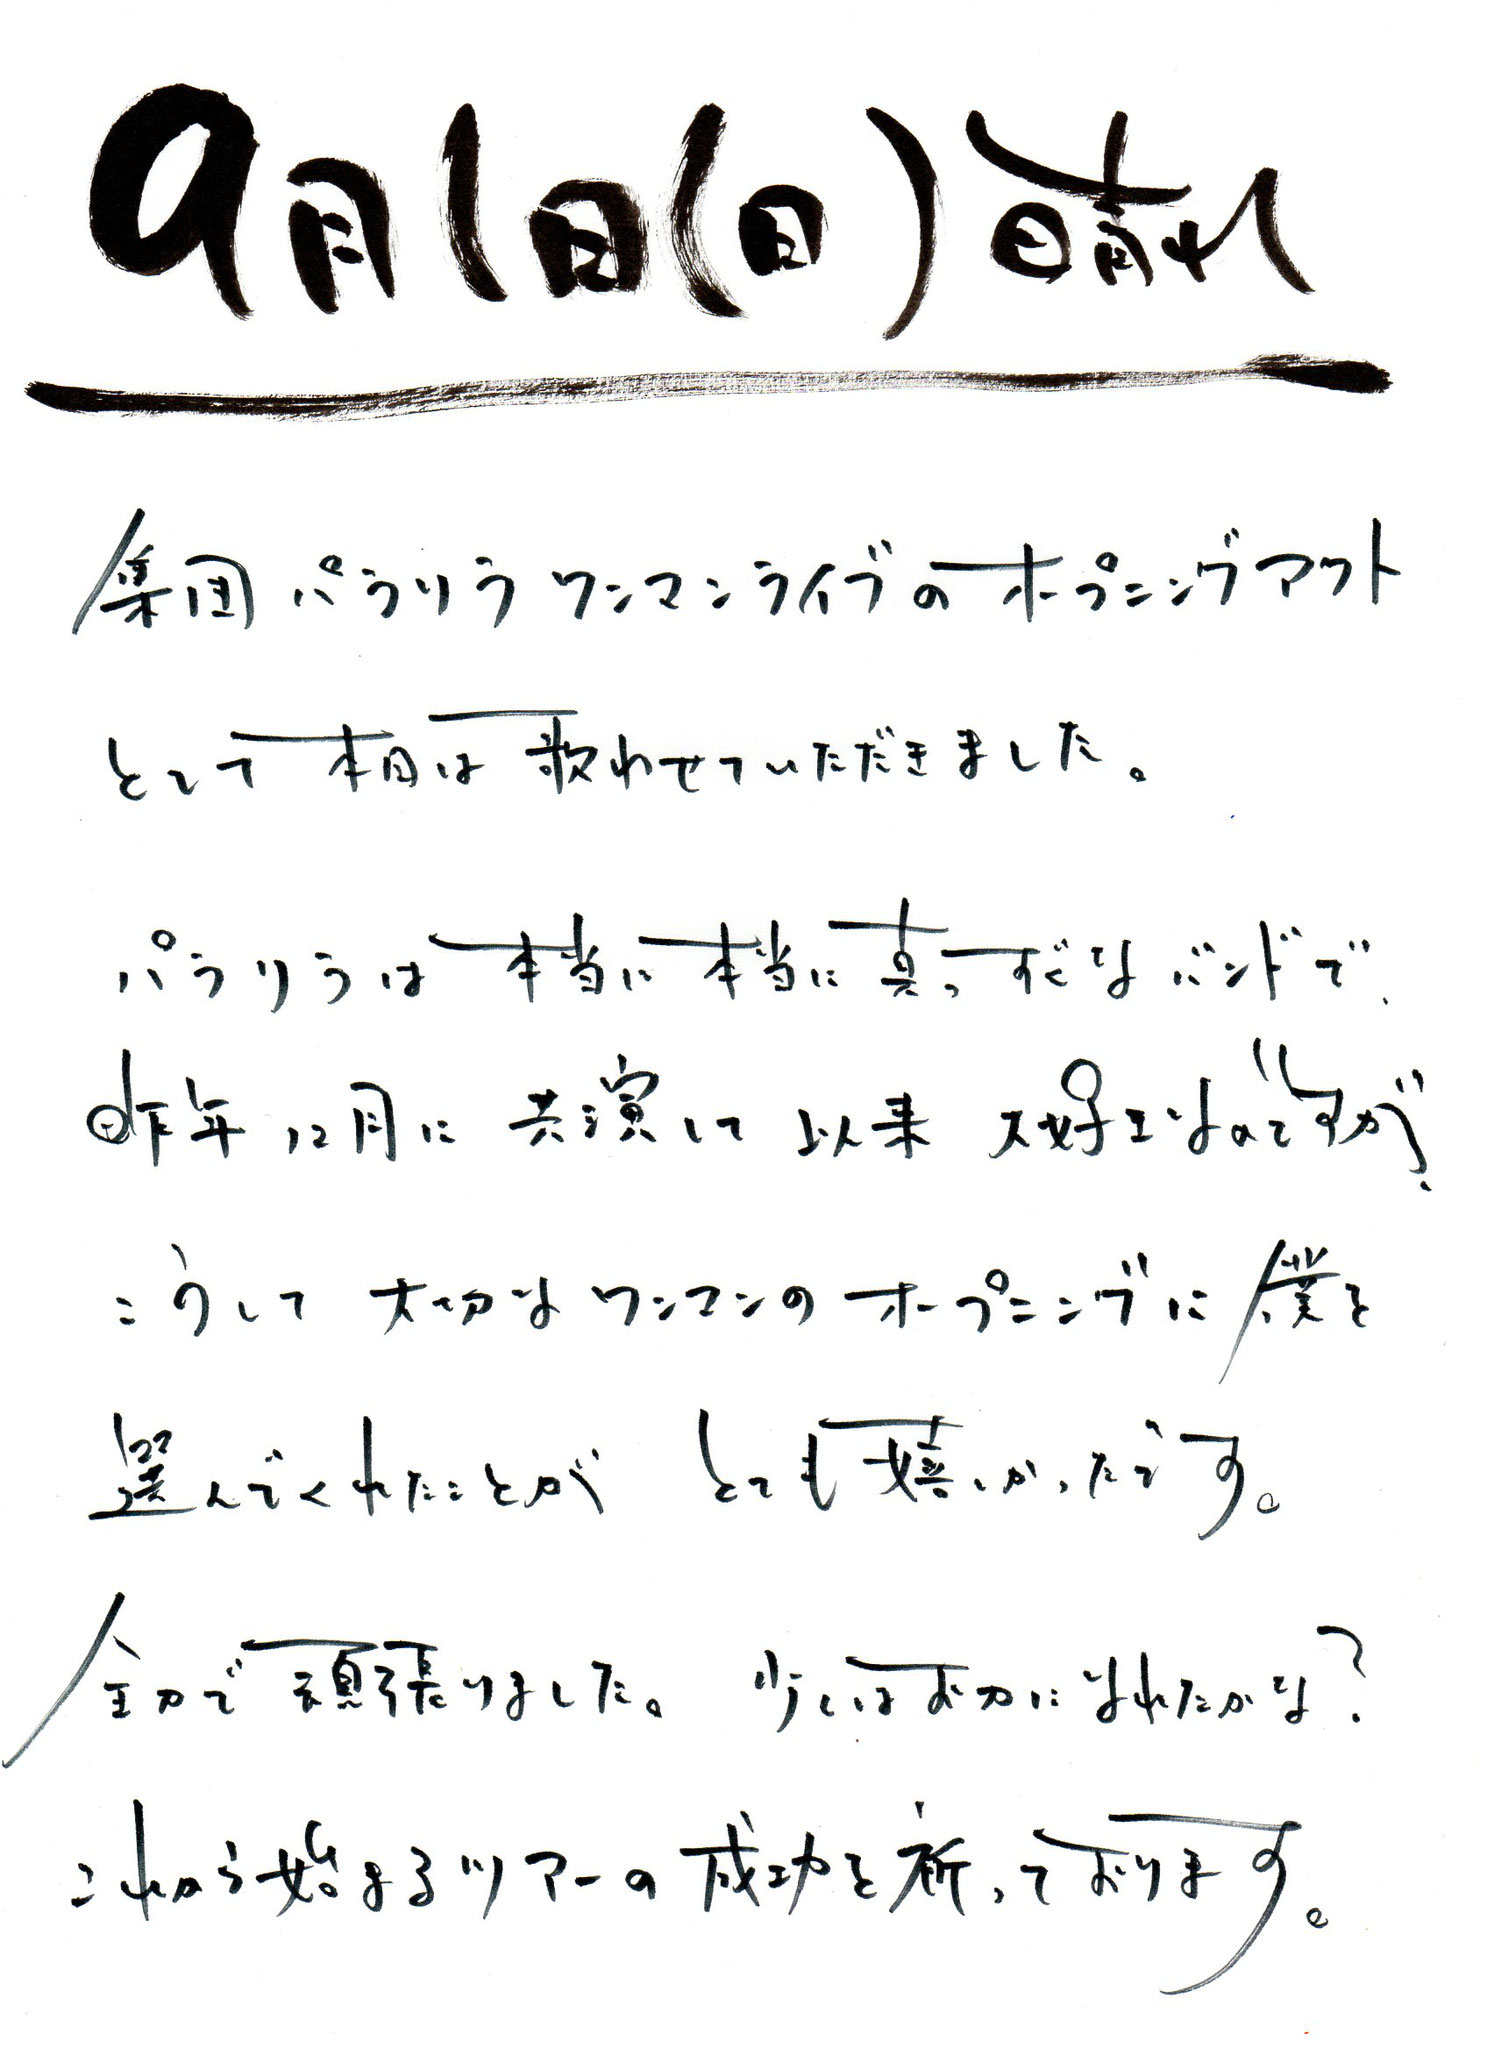 9月1日(日)晴れ
集団パラリラワンマンライブのオープニングアクト
として本日は歌わせていただきました。
パラリラは本当に本当に真っすぐなバンドで、
昨年12月に共演して以来 大好きなのですが、
こうして大切なワンマンのオープニングに僕を
選んでくれたことが とても嬉しかったです。
全力で頑張りました。 少しはお力になれたかな?
これから始まるツアーの成功を祈っております。